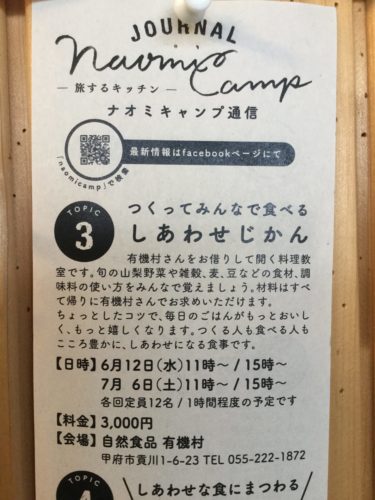 JOURNAL
naomi Camp
— 旅するキッチン —
ナオミキャンプ通信
最新情報はfacebookページにて
「naomicamp」で検索
TOPIC
3
つくってみんなで食べる
しあわせじかん
有機村さんをお借りして開く料理教
室です。旬の山梨野菜や雑穀、麦、豆などの食材、調
味料の使い方をみんなで覚えましょう。材料はすべ
て帰りに有機村さんでお求めいただけます。
ちょっとしたコツで、毎日のごはんがもっとおいし
く、もっと嬉しくなります。つくる人も食べる人も
こころ豊かに、しあわせになる食事です。
【日時】6月12日(水)11時〜 / 15時〜
7月 6日(土)11時〜 / 15時〜
各回定員12名 / 1時間程度の予定です
【料金】3,000円
【会場】自然食品 有機村
甲府市貢川1-6-23 TEL 055-222-1872
TOPIC
しあわせな食にまつわる